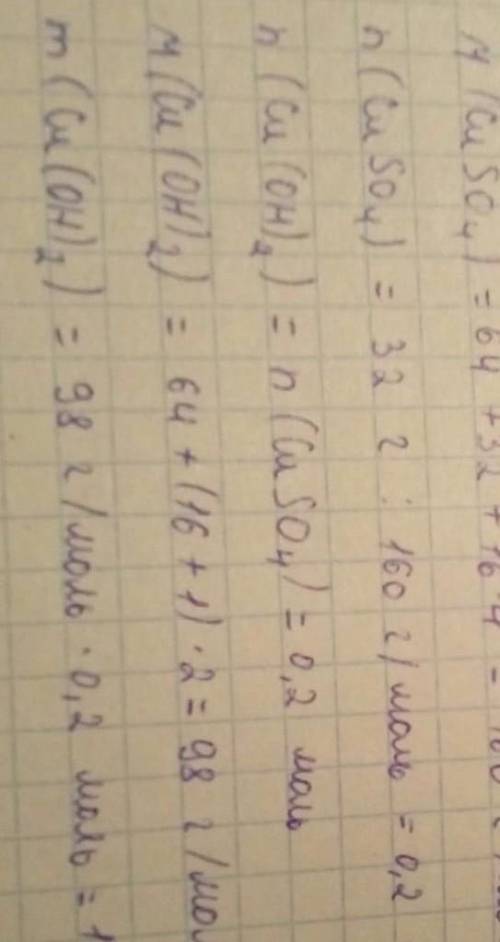 M(CuSO₄) = 64 + 32 + 16·4 = 160 г/
n(CuSO₄) = 32 г : 160 г/моль = 0,2
n(Cu(OH)₂) = n(CuSO₄) = 0,2 моль
M(Cu(OH)₂) = 64 + (16 + 1)·2 = 98 г/мол
m(Cu(OH)₂) = 98 г/моль · 0,2 моль = 1